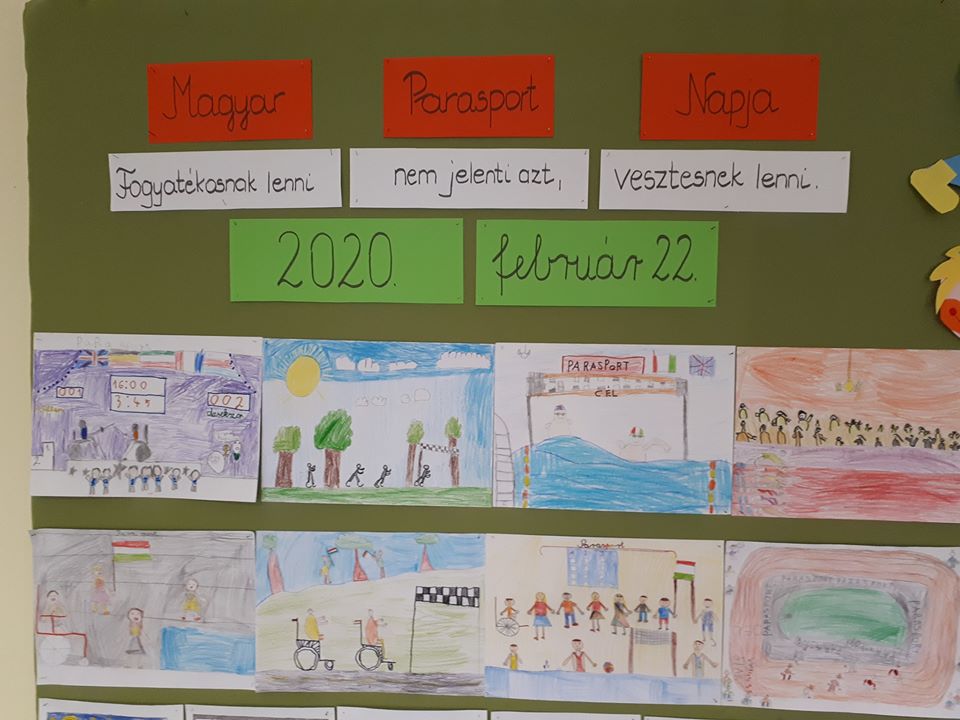 Magyar Parasport Napja
Fogyatékosnak lenni nem jelenti azt, vesztesnek lenni.
2020. február 22.
001
16:00
3:45
002
PARASPORT
CÉL
Parasport